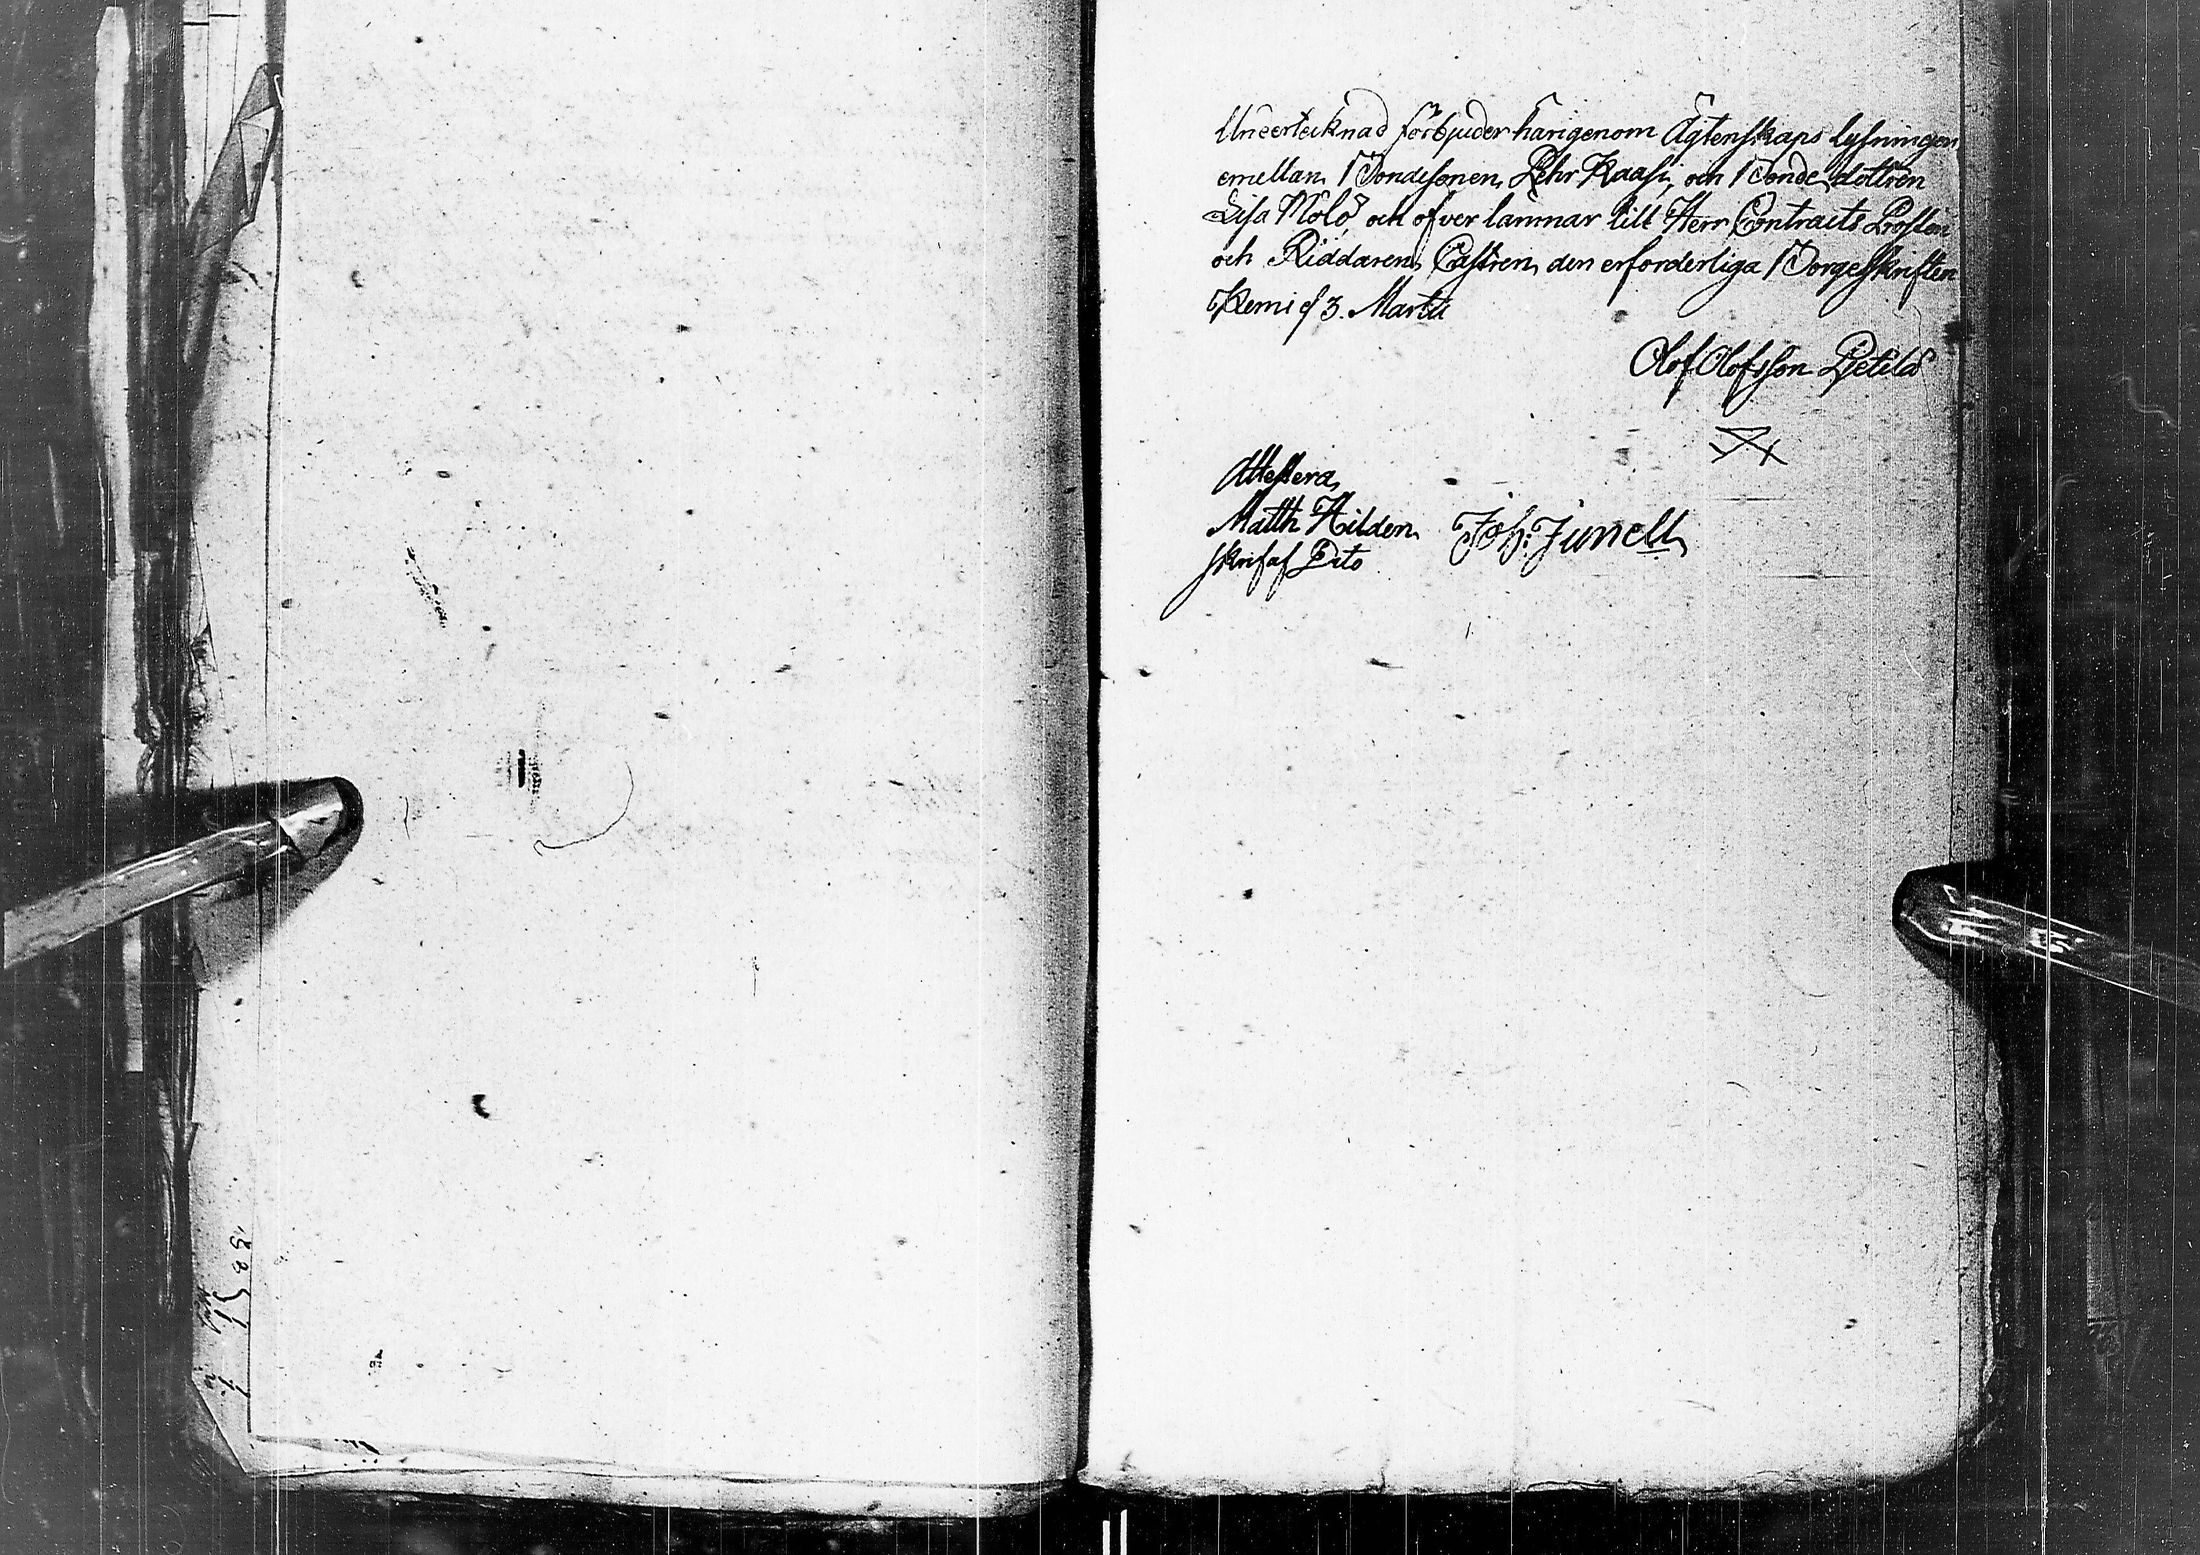 Undertecknad förbjuder härigenom Ägtenskaps lysningen
emellan Bondesonen Pehr Kaasi, och Bonde dottren
Lisa och öfver lämnar till Herr Contracts Prosten
och Riddaren Castren den erforderliga Borgesskriften
Kemi d 3. Martii
Olof Olofsson
Attestera
Matth Hilden Joh: Junell
skrif af Dito